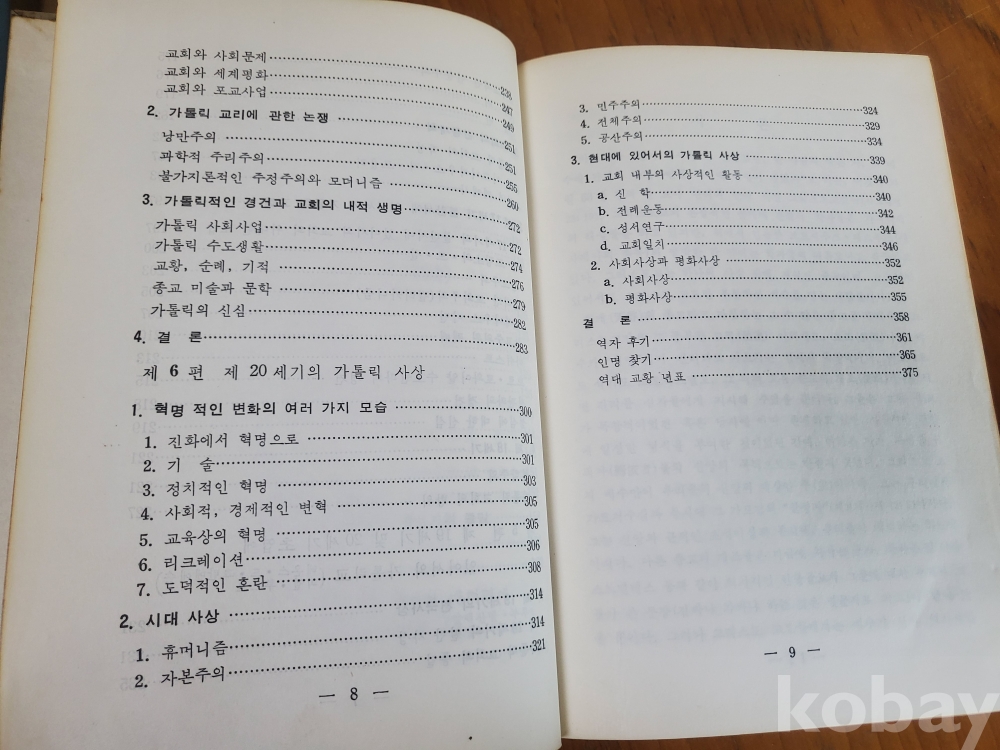 교회와 사회문제 238
교회와 세계평화 247
교회와 포교사업 249
2. 가톨릭 교리에 관한 논쟁 251
낭만주의 251
과학적 주리주의 255
불가지론적인 주정주의와 모더니즘 260
3. 가톨릭적인 경건과 교회의 내적 생명 272
가톨릭 사회사업 272
가톨릭 수도생활 274
교황, 순례, 기적 276
종교 미술과 문학 279
가톨릭의 신심 282
4. 결 론 283
제 6 편 제 20 세기의 가톨릭 사상
1. 혁명 적인 변화의 여러 가지 모습 300
1. 진화에서 혁명으로 301
2. 기 술 301
3. 정치적인 혁명 303
4. 사회적, 경제적인 변혁 305
5. 교육상의 혁명 305
6. 리크레이션 306
7. 도덕적인 혼란 308
2. 시대 사상 314
1. 휴머니즘 314
2. 자본주의 321
— 8 —
3. 민주주의 324
4. 전체주의 329
5. 공산주의 334
3. 현대에 있어서의 가톨릭 사상 339
1. 교회 내부의 사상적인 활동 340
a. 신 학 340
b. 전례운동 342
c. 성서연구 344
d. 교회일치 346
2. 사회사상과 평화사상 352
a. 사회사상 352
b. 평화사상 355
결 론 358
역자 후기 361
인명 찾기 365
역대 교황 년표 375
— 9 —
kobay